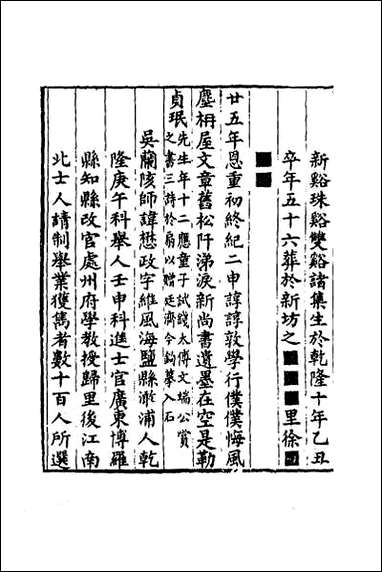 新谿珠谿雙谿諸集生於乾隆十年乙丑
卒年五十六葬於新坊之■■■■里徐■
■■
廿五年恩重初終紀二申諄諄敦學行僕僕悔風
塵枏屋文章舊松阡涕淚新尚書遺墨在空是勒
貞珉先生年十二應童子試謁太傅文端公賞
之書三詩於扇以贈廷濟今鉤摹入石
吳蘭陔師諱懋政字維風海鹽縣澉浦人乾
隆庚午科舉人壬申科進士官廣東博羅
縣知縣改官處州府學教授歸里後江南
北士人請制舉業獲雋者數十百人所選